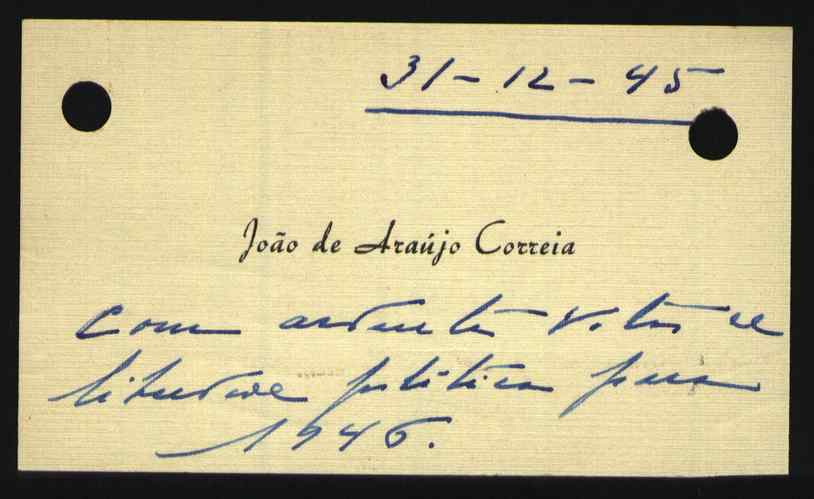 31-12-45
João de Araújo Correia
com ardentes votos de
liberdade política para
1946.